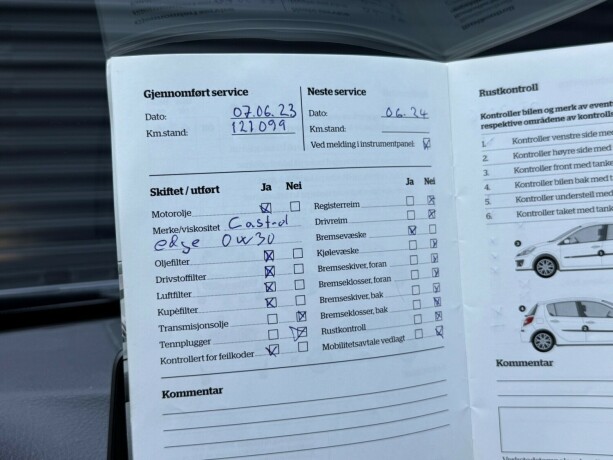 Gjennomført service
Dato: 07.06.23
Km.stand: 121.099
Neste service
Dato: 06.24
Km.stand:
Ved melding i instrumentpanel:
Skiftet / utført Ja Nei
Motorolje
Merke/viskositet Cast-d
edge 0w30
Oljefilter
Drivstoffilter
Luftfilter
Kupéfilter
Transmisjonsolje
Tennplugger
Kontrollert for feilkoder
Ja Nei
Registerreim
Drivreim
Bremsevæske
Kjølevæske
Bremseskiver, foran
Bremseklosser, foran
Bremseskiver, bak
Bremseklosser, bak
Rustkontroll
Mobilitetsavtale vedlagt
Kommentar
Rustkontroll
Kontroller bilen og merk av
respektive områdene av kontroll
1. Kontroller venstre side med
2. Kontroller høyre side med
3. Kontroller front med
4. Kontroller bilen bak med
5. Kontroller understell med
6. Kontroller taket med
Kommentar